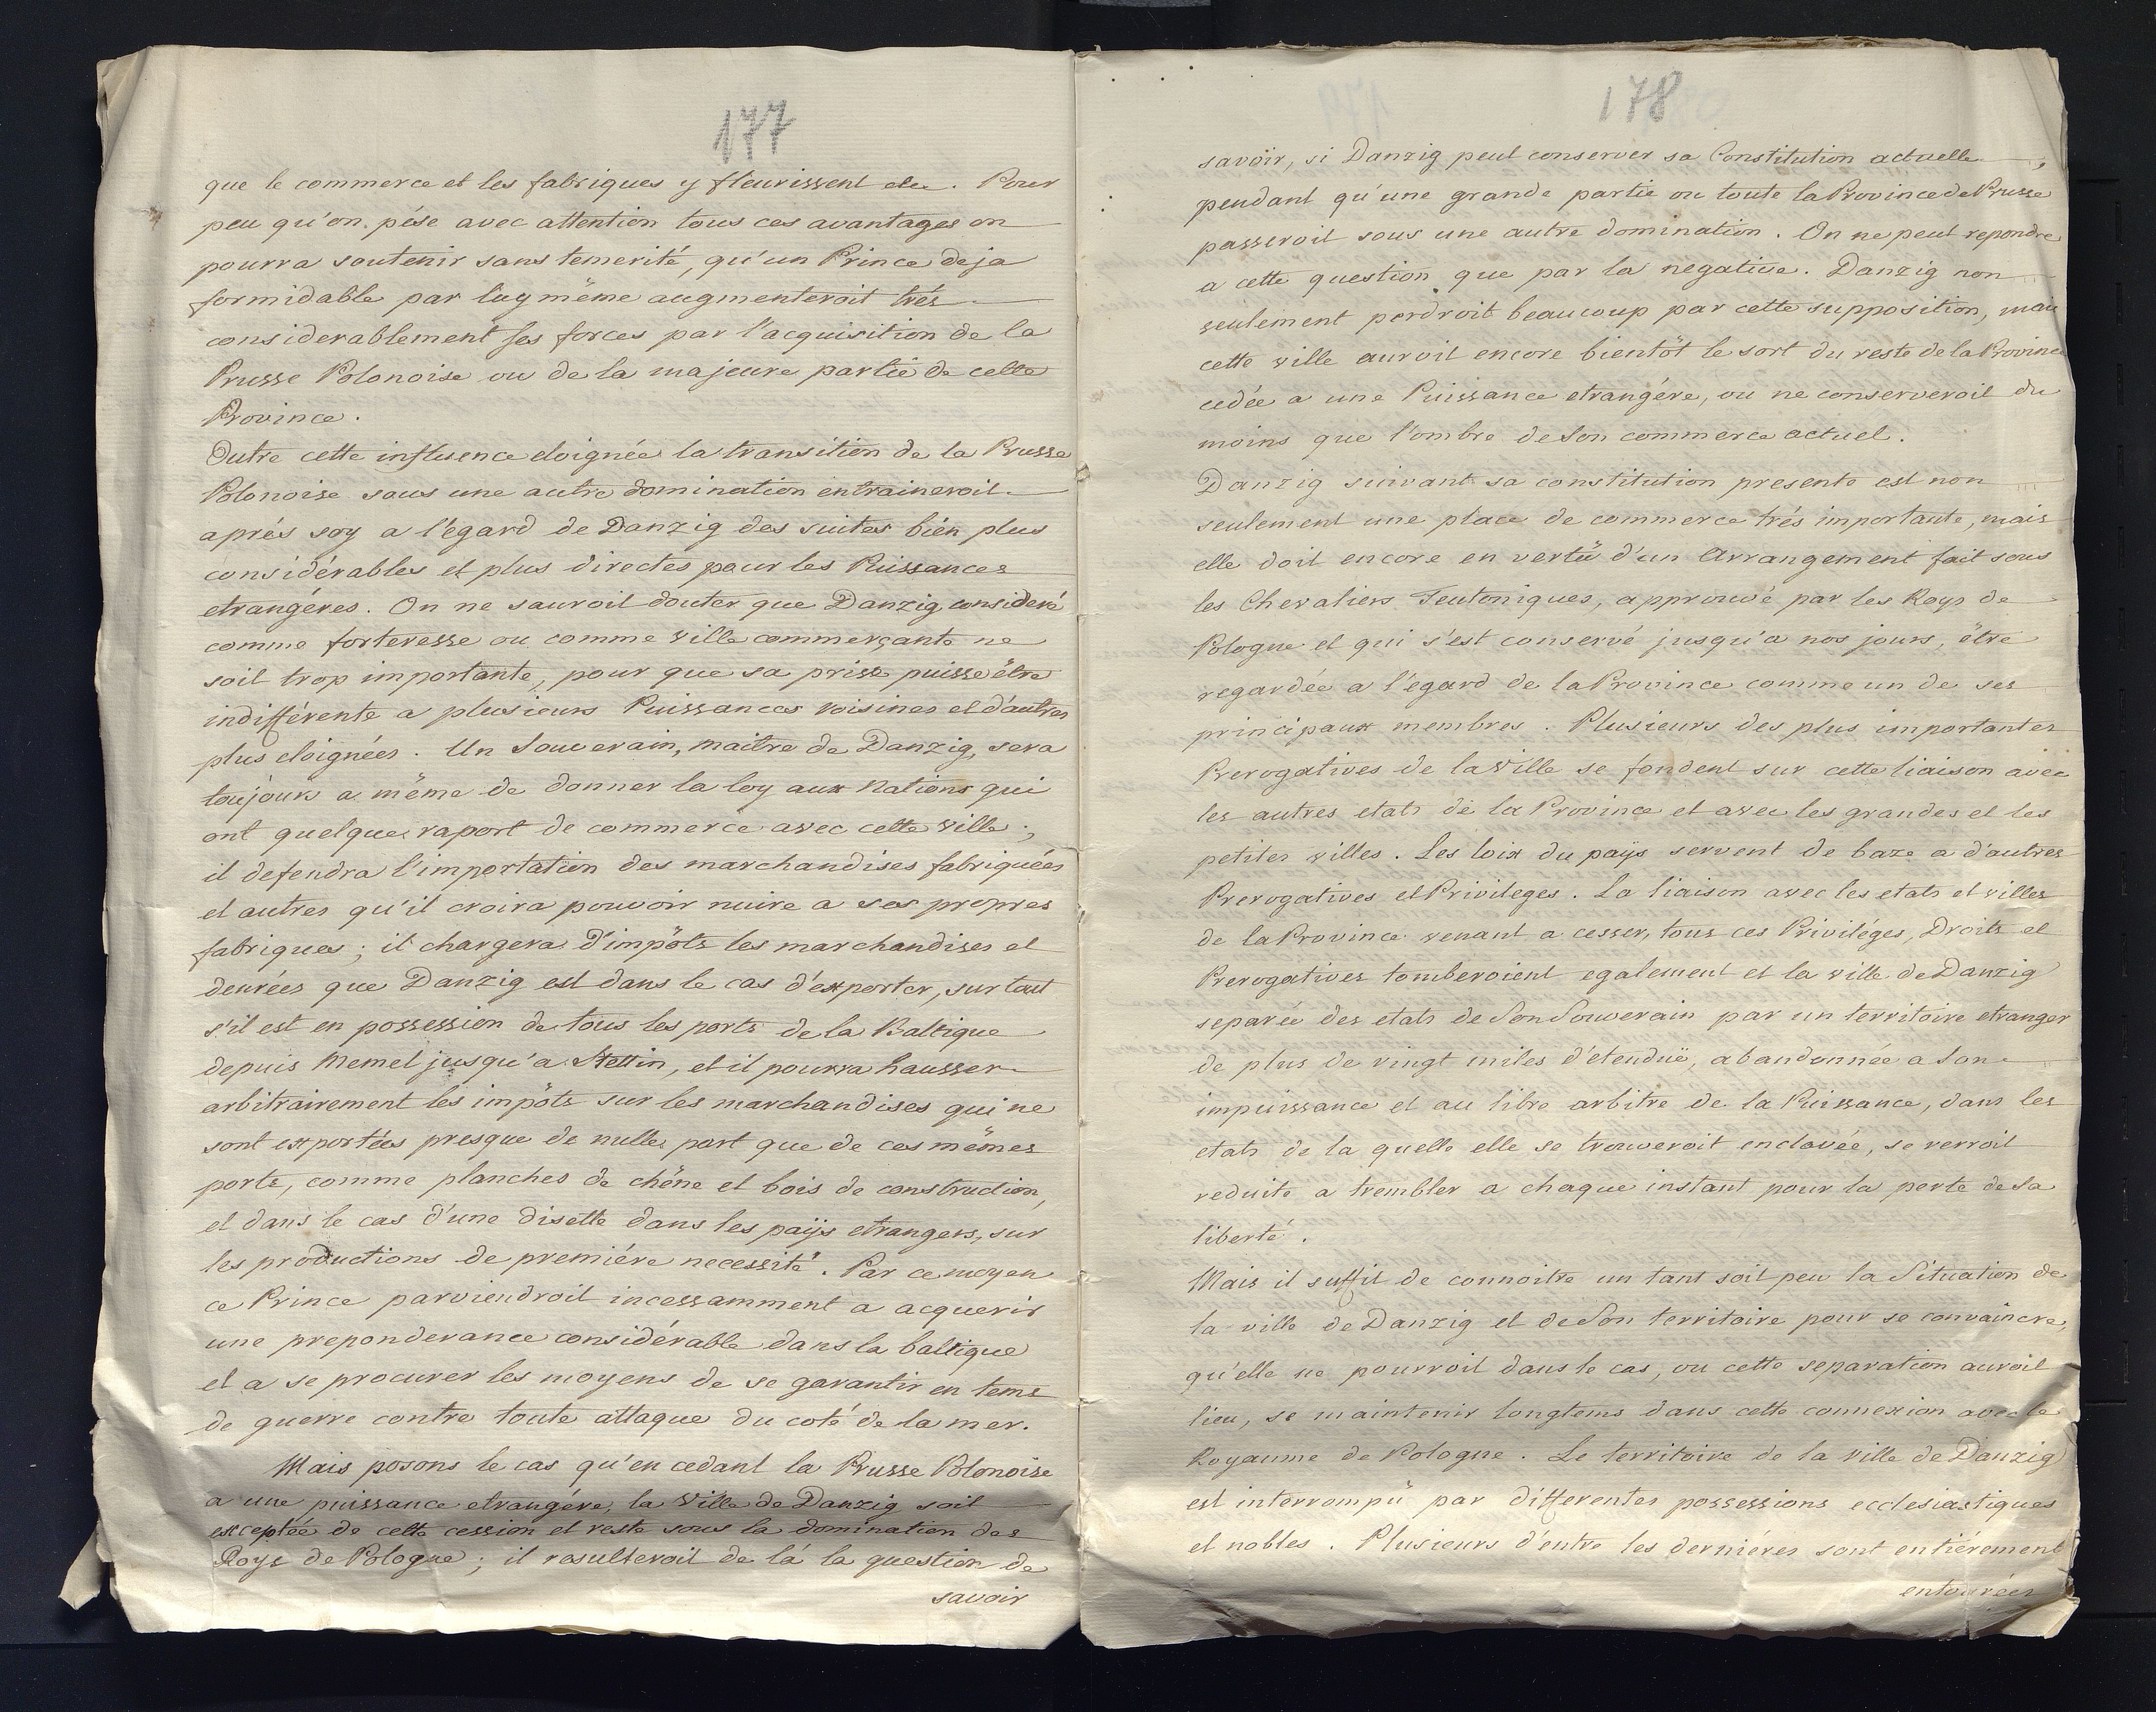 177
que le commerce et les fabriques y fleurissent etc. Pour
peu qu'on pése avec attention tous ces avantages on
pourra soutenir sans temerité, qu'un Prince deja
formidable par luy même augmenteroit trés
considerablement ses forces par l'acquisition de la
Prusse Polonoise ou de la majeure partie de cette
Province.
Outre cette influence eloignée la transition de la Prusse
Polonoise sous une autre domination entraineroit
aprés soy a l'égard de Danzig des suites bien plus
considérables et plus directes pour les Puissances
etrangéres. On ne sauroit douter que Danzig consideré
comme forteresse ou comme ville commerçante ne
soit trop importante, pour que sa prise puisse être
indifférente a plusieurs Puissances voisines et d'autres
plus eloignées. Un Souverain, maitre de Danzig, sera
toujours a même de donner la loy aux Nations qui
ont quelque raport de commerce avec cette ville;
il defendra l'importation des marchandises fabriquées
et autres qu'il croira pouvoir nuire a ses propres
fabriques; il chargera d'impôts les marchandises et
denrées que Danzig est dans le cas d'exporter, sur tout
s'il est en possession de tous les ports de la Baltique
depuis Memel jusqu'a Stettin, et il pourra hausser
arbitrairement les impôts sur les marchandises qui ne
sont exportées presque de nulle part que de ces mêmes
ports, comme planches de chêne et bois de construction,
et dans le cas d'une disette dans les païs etrangers, sur
les productions de premiére necessité. Par ce moyen
ce Prince parviendroit incessamment a acquerir
une preponderance considérable dans la baltique
et a se procurer les moyens de se garantir en tems
de guerre contre toute attaque du coté de la mer.
Mais posons le cas qu'en cedant la Prusse Polonoise
a une puissance etrangére, la Ville de Danzig soit
exceptée de cette cession et reste sous la domination des
Roys de Pologne; il resulteroit de là la question de
savoir
178
savoir, si Danzig peut conserver sa Constitution actuelle,
pendant qu'une grande partie ou toute la Province de Prusse
passeroit sous une autre domination. On ne peut repondre
a cette question que par la negative. Danzig non
seulement perdroit beaucoup par cette supposition, mais
cette ville auroit encore bientôt le sort du reste de la Province
cedée a une Puissance etrangére, ou ne conserveroit du
moins que l'ombre de Son commerce actuel.
Danzig suivant sa constitution presente est non
seulement une place de commerce trés importante, mais
elle doit encore en vertü d'un Arrangement fait sous
les Chevaliers Teutoniques, approuvé par les Roys de
Pologne et qui s'est conservé jusqu'a nos jours, être
regardée a l'egard de la Province comme un de ses
principaux membres. Plusieurs des plus importantes
Prerogatives de la Ville se fondent sur cette liaison avec
les autres etats de la Province et avec les grandes et les
petites villes. Les loix du païs servent de baze a d'autres
Prerogatives et Privileges. La liaison avec les etats et villes
de la Province venant a cesser, tous ces Priviléges, Droits et
Prerogatives tomberoient egalement et la ville de Danzig
separée des etats de Son Souverain par un territoire etranger
de plus de vingt miles d'etenduë, abandonnée a Son
impuissance et au libre arbitre de la Puissance, dans les
etats de la quelle elle se trouveroit enclavée, se verroit
reduite a trembler a chaque instant pour la perte de Sa
liberté.
Mais il suffit de connoitre un tant soit peu la Situation de
la ville de Danzig et de Son territoire pour se convaincre,
qu'elle ne pourroit dans le cas, ou cette separation auroit
lieu, se maintenir longtems dans cette connexion avec le
Royaume de Pologne. Le territoire de la ville de Danzig
est interrompü par differentes possessions ecclesiastiques
et nobles. Plusieurs d'entre les derniéres sont entiérement
entourées